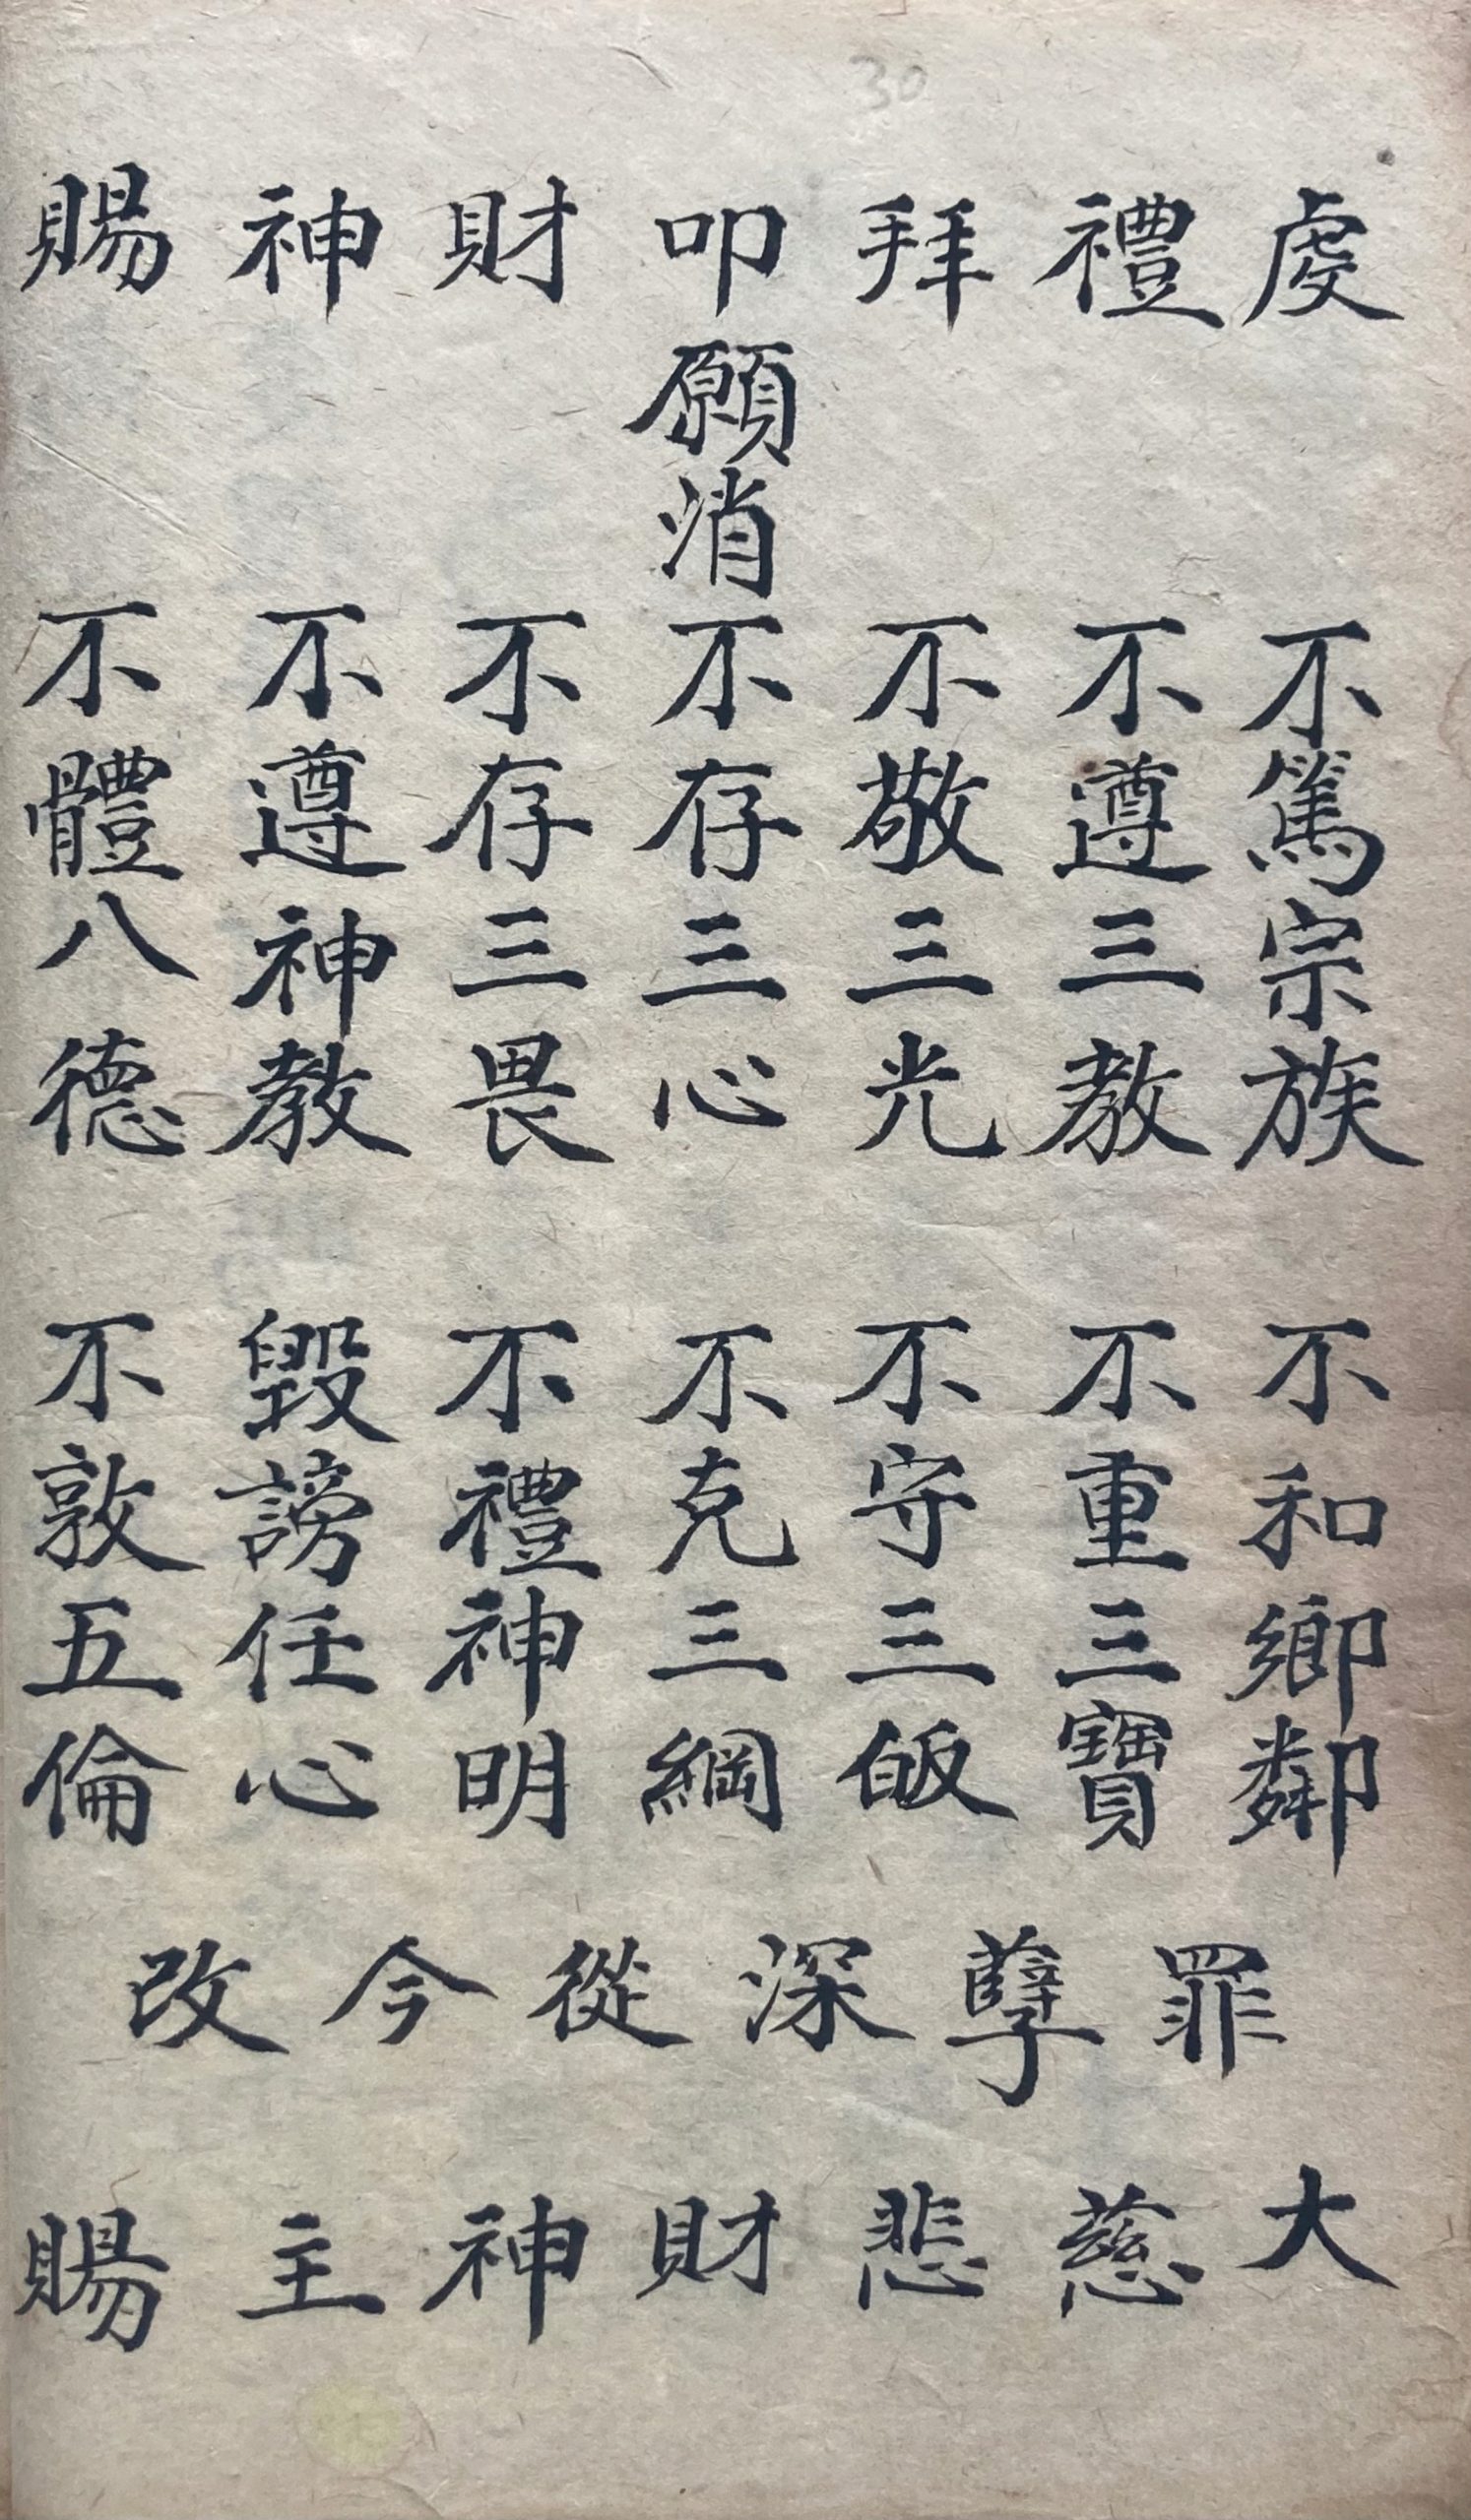 30
虔禮拜叩財神賜
願消
不篤宗族 不和鄉鄰
不遵三教 不重三寶
不敬三光 不守三皈
不存三心 不克三綱
不存三畏 不禮神明
不遵神教 毀謗任心
不體八德 不敦五倫
罪孽深從今改
大慈悲財神主賜